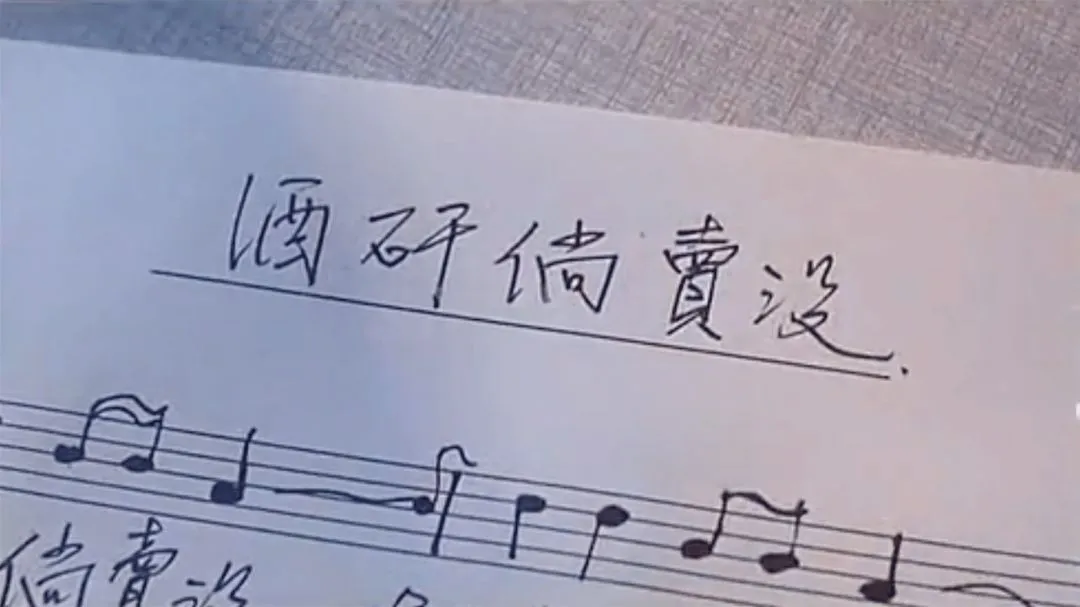 酒矸倘賣没
倘賣没